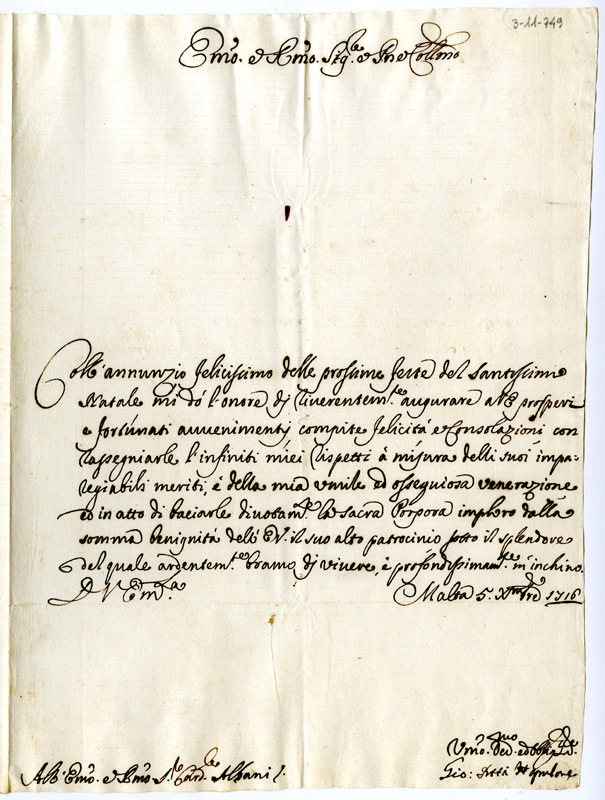 3-11-749
Emo. e Rmo. Sigre. e Pne Collmo
Coll'annunzio felicissimo delle prossime feste del Santissimo
Natale mi dó l'onore dj riverentemte. augurare a V E prosperi
e fortunati auuenimentj compite felicitá e Consolazioni con
rassegniarle l'infiniti miei rispetti á misura delli suoi impa-
regiabili meriti, é della mia vmile ed ossequiosa venerazione
ed in atto di baciarle diuotamte. la sacra Porpora imploro dalla
somma benignitá dell'EV. il suo alto patrocinio sotto il splendore
del quale ardentemte. bramo dj viuere, é profondissimamte. m'inchino.
D V Emza.
Malta 5. Xmbre 1716
Vmo. Ded. ed obbligmo
Gio:
All'Emo. e Rmo. S.r Cardle. Albani